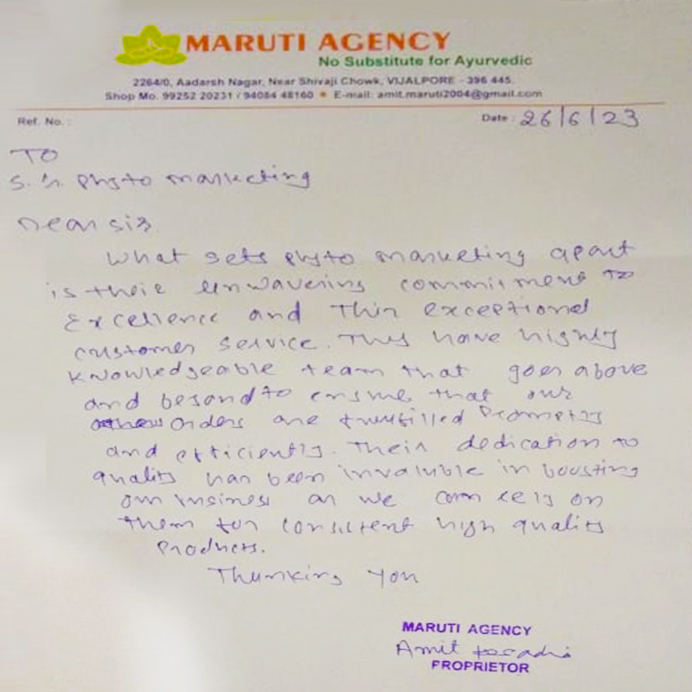 MARUTI AGENCY
No Substitute for Ayurvedic
2264/0, Aadarsh Nagar, Near Shivaji Chowk, VIJALPORE - 396 445.
Shop Mo. 99252 20231 / 94084 48160 • E-mail: amit.maruti2004@gmail.com
Ref. No. :
Date : 26/6/23
TO
S. phyto marketing
Dear sir
What sets phyto marketing apart
is their unwavering commitment to
Excellence and Thir exceptional
customer service. They have highly
knowledgeable team that goes above
and beyond to ensure that our
orders are fullfilled Promptly
and efficiently. Their dedication to
quality has been invaluble in boosting
our business as we can rely on
them for consistent high quality
Products.
Thanking you
MARUTI AGENCY
Amit
PROPRIETOR